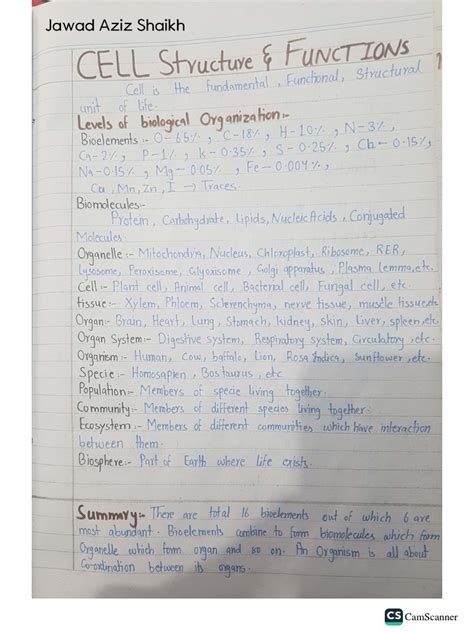 Jawad Aziz Shaikh
CELL Structure & FUNCTIONS
Cell is the fundamental, Functional, Structural
unit of life.
Levels of biological Organization:-
Bioelements :- O-65%, C-18%, H-10%, N-3%,
Ca-2%, P-1%, K-0.35%, S-0.25%, Cl-0.15%,
Na-0.15%, Mg-0.05%, Fe-0.004%,
Cu, Mn, Zn, I → Traces.
Biomolecules:-
Protein, Carbohydrate, Lipids, Nucleic Acids, Conjugated
Molecules
Organelle :- Mitochondria, Nucleus, Chloroplast, Ribosome, RER,
Lysosome, Peroxisome, Glyoxisome, Golgi apparatus, Plasma Lemma, etc.
Cell :- Plant cell, Animal cell, Bacterial cell, Fungal cell, etc.
tissue:- Xylem, Phloem, Sclerenchyma, nerve tissue, muscle tissue, etc
Organ:- Brain, Heart, Lung, Stomach, kidney, Skin, Liver, spleen, etc.
Organ System:- Digestive system, Respiratory system, Circulatory, etc.
Organism:- Human, Cow, baffalo, Lion, Rosa Indica, Sunflower, etc.
Specie:- Homosapien, Bos taurus, etc
Population:- Members of specie living together.
Community:- Members of different species living together.
Ecosystem:- Members of different communities which have interaction
between them.
Biosphere:- Part of Earth where life exists.
Summary:- There are total 16 bioelements out of which 6 are
most abundant. Bioelements combine to form biomolecules, which form
Organelle which form organ and so on. An Organism is all about
Co-ordination between its organs.
CS CamScanner